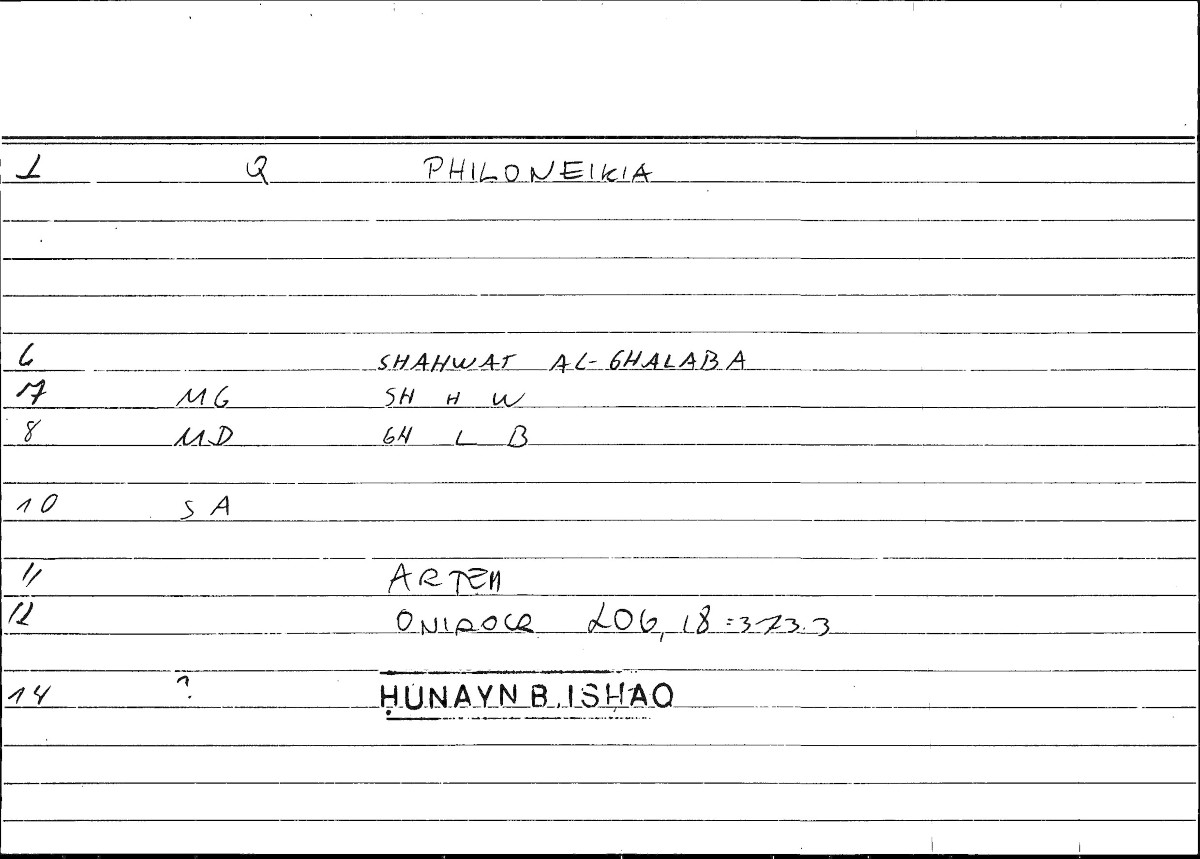 1 Q PHILONEIKIA
6 SHAHWAT AL-GHALABA
7 MG SH H W
8 MD GH L B
10 SA
11 ARTEM
12 ONIROCR 206,18=373.3
14 ? ḤUNAYN B. ISḤAQ